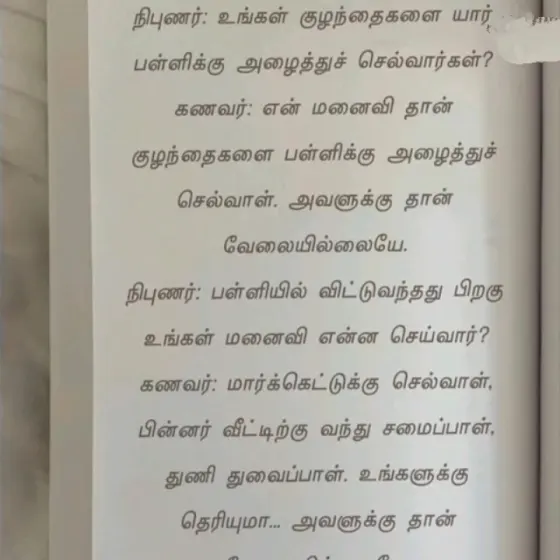 நிபுணர்: உங்கள் குழந்தைகளை யார்
பள்ளிக்கு அழைத்துச் செல்வார்கள்?
கணவர்: என் மனைவி தான்
குழந்தைகளை பள்ளிக்கு அழைத்துச்
செல்வாள். அவளுக்கு தான்
வேலையில்லையே.
நிபுணர்: பள்ளியில் விட்டுவந்தது பிறகு
உங்கள் மனைவி என்ன செய்வார்?
கணவர்: மார்க்கெட்டுக்கு செல்வாள்,
பின்னர் வீட்டிற்கு வந்து சமைப்பாள்,
துணி துவைப்பாள். உங்களுக்கு
தெரியுமா... அவளுக்கு தான்